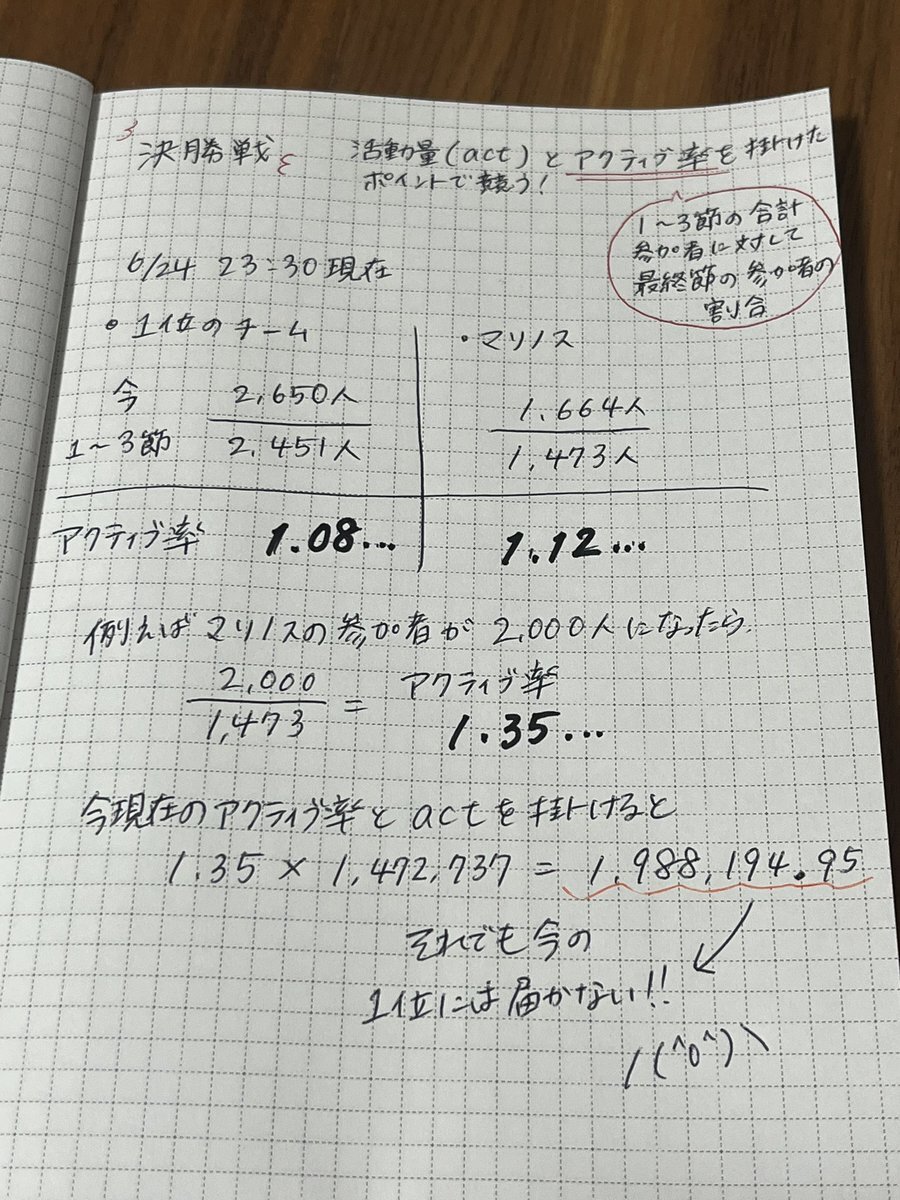 決勝戦
活動量(act)とアクティブ率を掛けた
ポイントで競う!
1〜3節の合計
参加者に対して
最終節の参加者の
割合
6/24 23:30現在
・1位のチーム
今 2,650人
1〜3節 2,451人
・マリノス
1,664人
1,473人
アクティブ率 1.08... 1.12...
例えばマリノスの参加者が2,000人になったら
2,000
1,473
=
アクティブ率
1.35...
今現在のアクティブ率とactを掛けると
1.35 × 1,472,737 = 1,988,194.95
それでも今の
1位には届かない!!
/(^o^)\